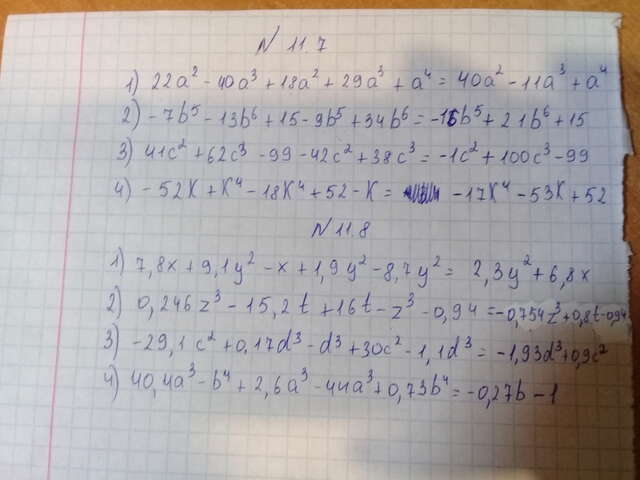 N 11.7
1) 22a² - 40a³ + 18a² + 29a³ + a⁴ = 40a² - 11a³ + a⁴
2) - 7b⁵ - 13b⁶ + 15 - 9b⁵ + 34b⁶ = -16b⁵ + 21b⁶ + 15
3) 41c² + 62c³ - 99 - 42c² + 38c³ = -1c² + 100c³ - 99
4) - 52K + K⁴ - 18K⁴ + 52 - K = - 17K⁴ - 53K + 52
N 11.8
1) 7,8x + 9,1y² - x + 1,9y² - 8,7y² = 2,3y² + 6,8x
2) 0,246z³ - 15,2t + 16t - z³ - 0,94 = -0,754z³ + 0,8t - 0,94
3) -29,1c² + 0,17d³ - d³ + 30c² - 1,1d³ = -1,93d³ + 0,9c²
4) 40,4a³ - b⁴ + 2,6a³ - 44a³ + 0,73b⁴ = -0,27b - 1